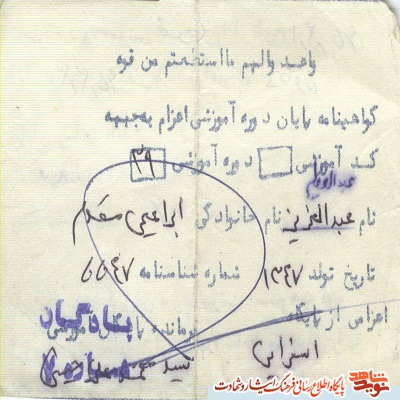 واعدوا لهم ما استطعتم من قوه
گواهینامه پایان دوره آموزشی اعزام به جبهه
کد آموزشی دوره آموزشی ۳۹
عبدالعزیز
نام عبدالعزیز نام خانوادگی ابراهیمی مقدم
تاریخ تولد ۱۳۴۷ شماره شناسنامه ۵۵۴۷
اعزامی از پایگاه فرمانده پادگان آموزشی
پادگان
سید
پایگاه اطلاع رسانی فرهنگ ایثار و شهادت
نوید شاهد